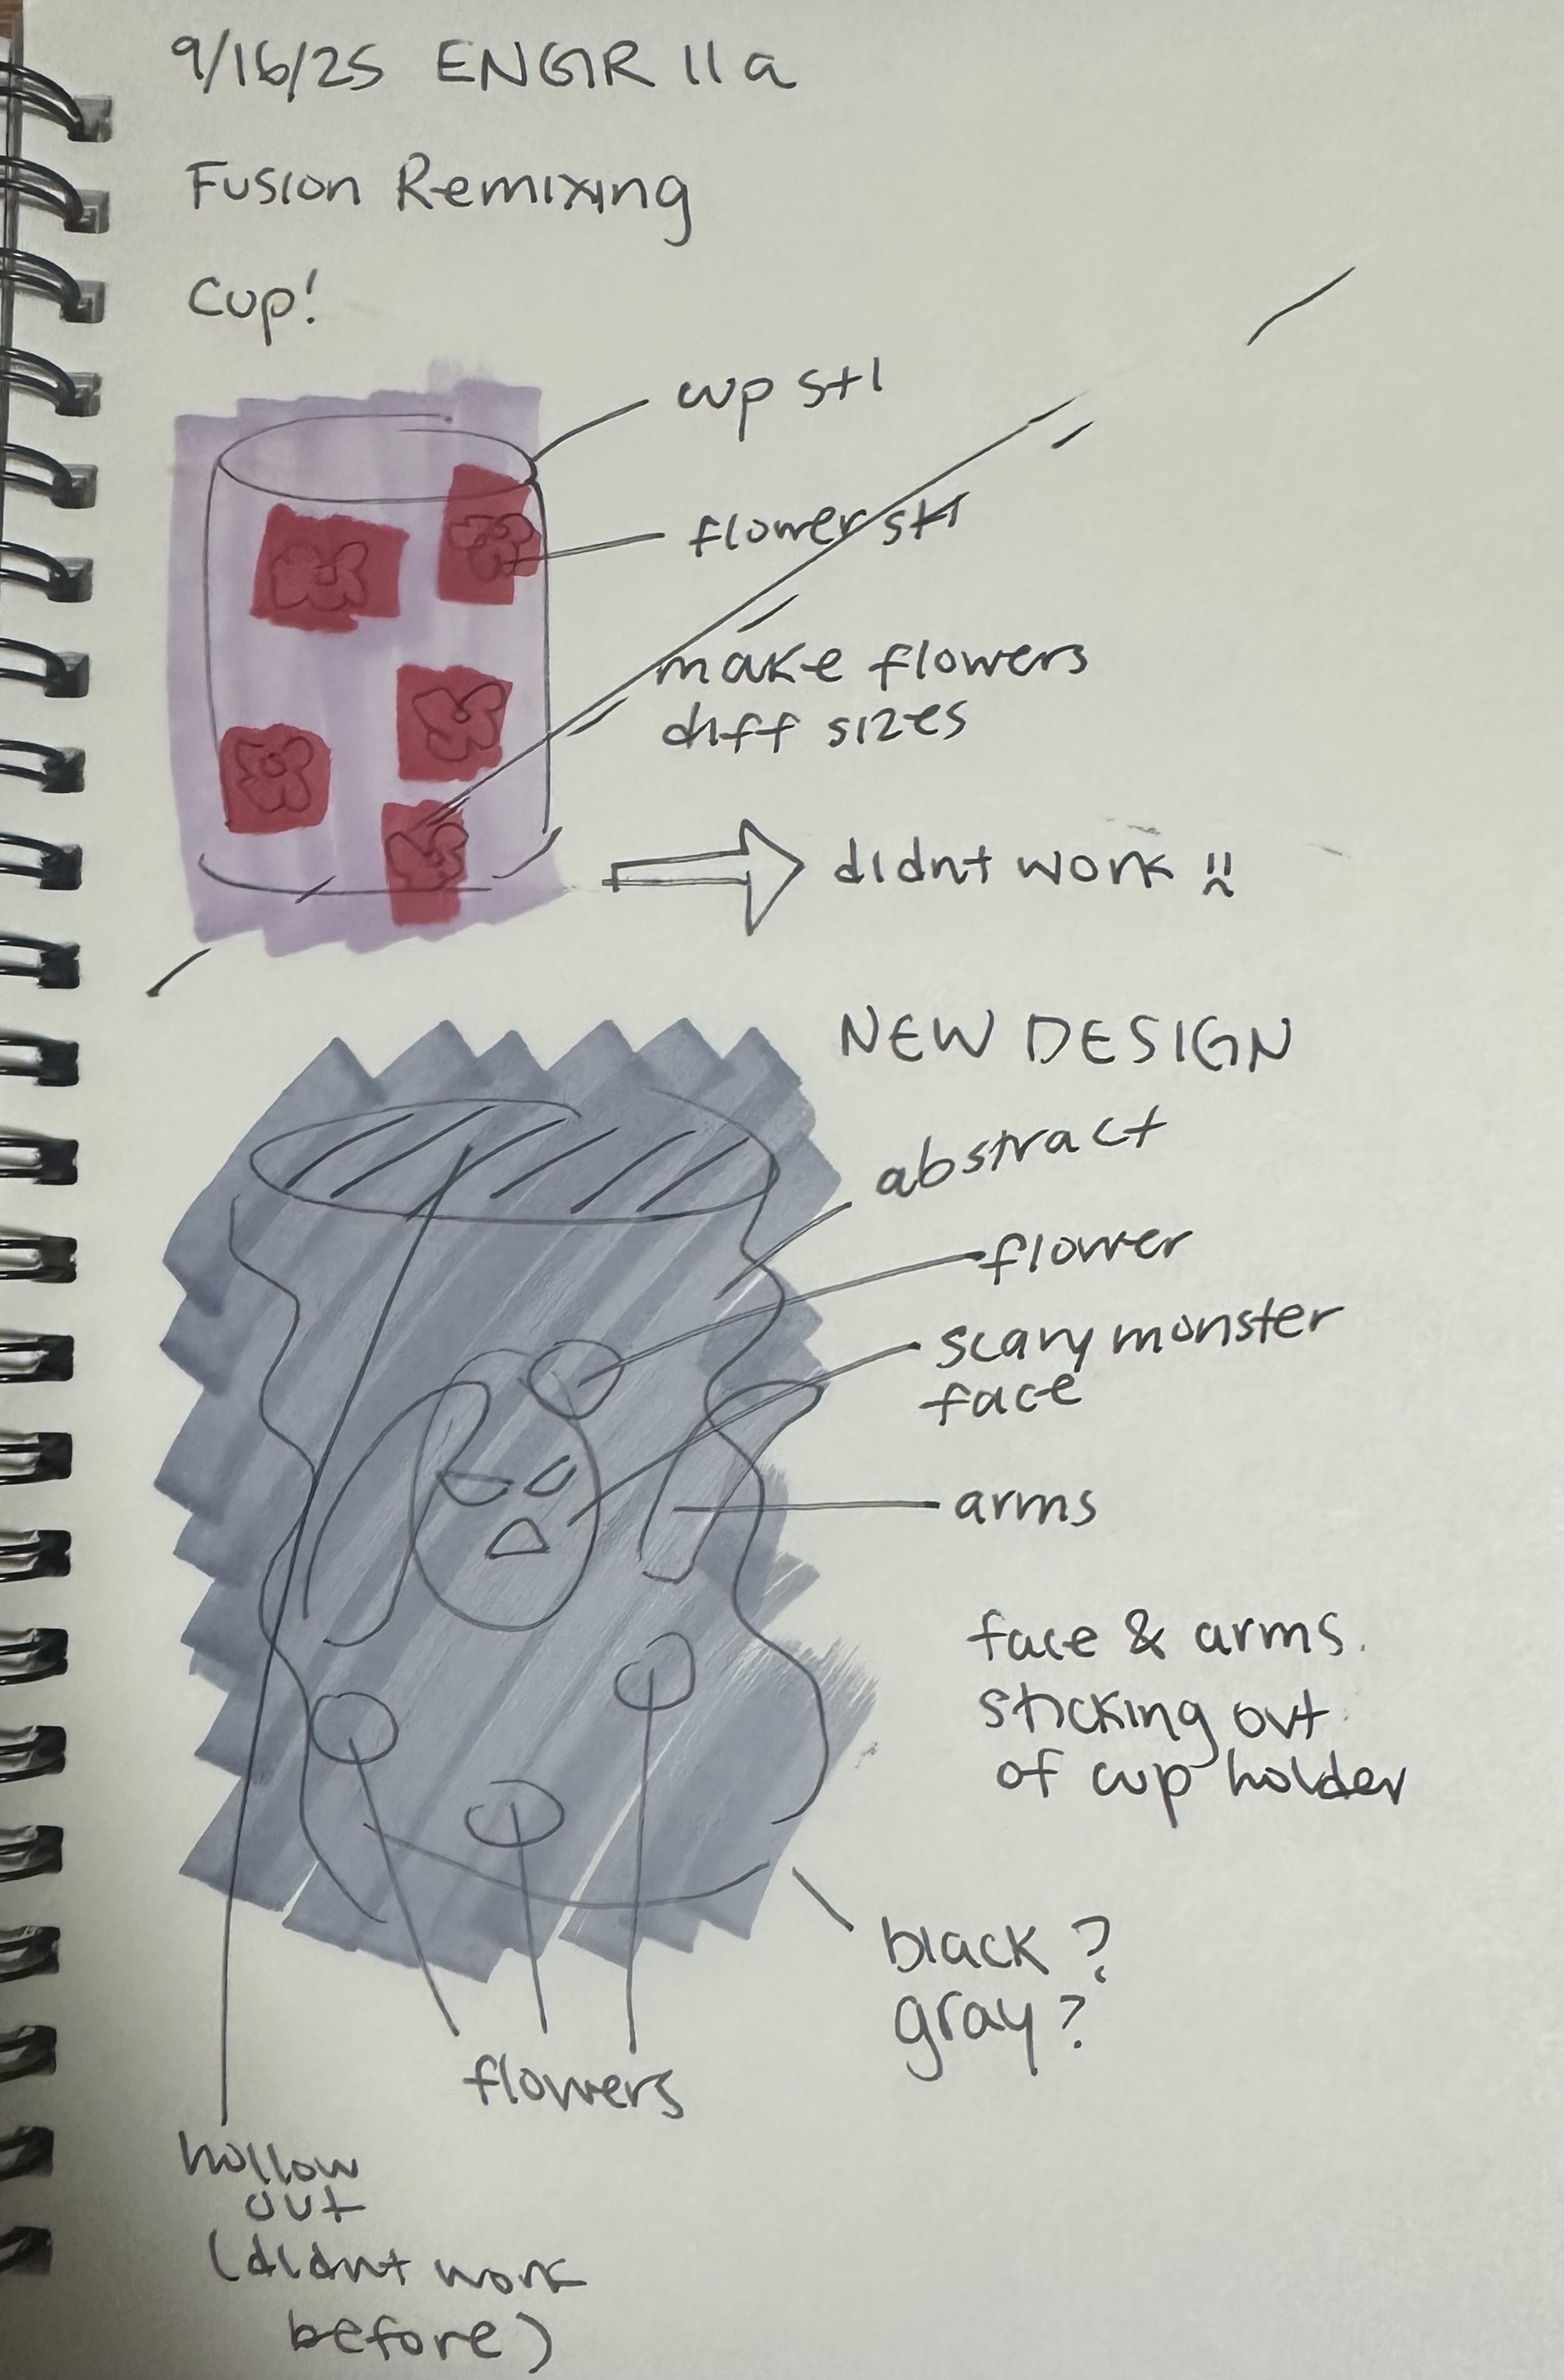 9/16/25 ENGR 11a
Fusion Remixing
Cup!
cup stl
flower stl
make flowers
diff sizes
didnt work
NEW DESIGN
abstract
flower
scary monster
face
arms
face & arms.
sticking out
of cup holder
black?
gray?
flowers
hollow
out
(didnt work
before)